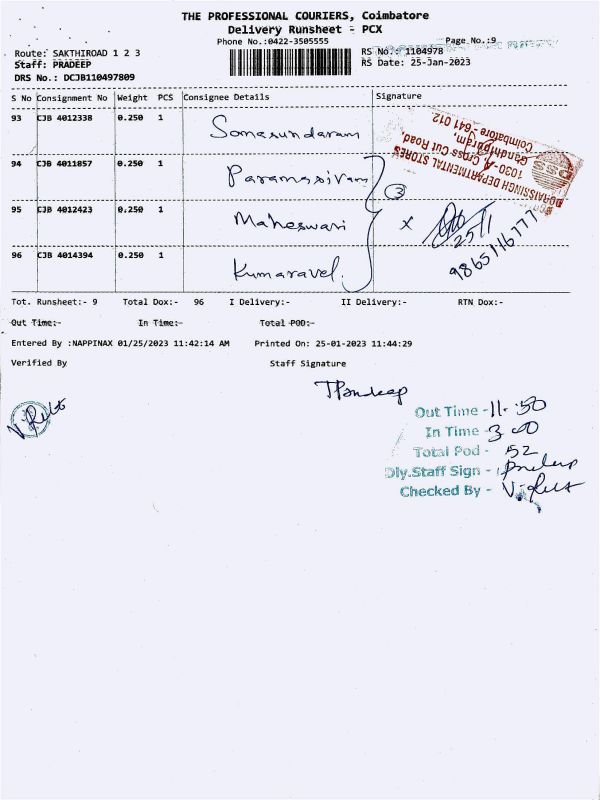 THE PROFESSIONAL COURIERS, Coimbatore
Delivery Runsheet - PCX
Phone No.:0422-3505555
Page No.:9
Route: SAKTHIROAD 1 2 3
RS No.: 1104978
Staff: PRADEEP
RS Date: 25-Jan-2023
DRS No.: DCJB110497809
S No Consignment No Weight PCS Consignee Details Signature
93 CJB 4012338 0.250 1 Somasundaram
94 CJB 4011857 0.250 1 Paramasivam
3
95 CJB 4012423 0.250 1 Maheswari X
96 CJB 4014394 0.250 1 Kumaravel.
DORAISINGH DEPARTMENTAL STORES
1030-A, Cross Cut Road,
Gandhipuram,
Coimbatore - 641 012
DS
25/1
9865116777
Tot. Runsheet:- 9 Total Dox:- 96 I Delivery:- II Delivery:- RTN Dox:-
Out Time:- In Time:- Total POD:-
Entered By :NAPPINAX 01/25/2023 11:42:14 AM Printed On: 25-01-2023 11:44:29
Verified By Staff Signature
Out Time - 11.50
In Time - 3.00
Total Pod - 52
Dly.Staff Sign -
Checked By -